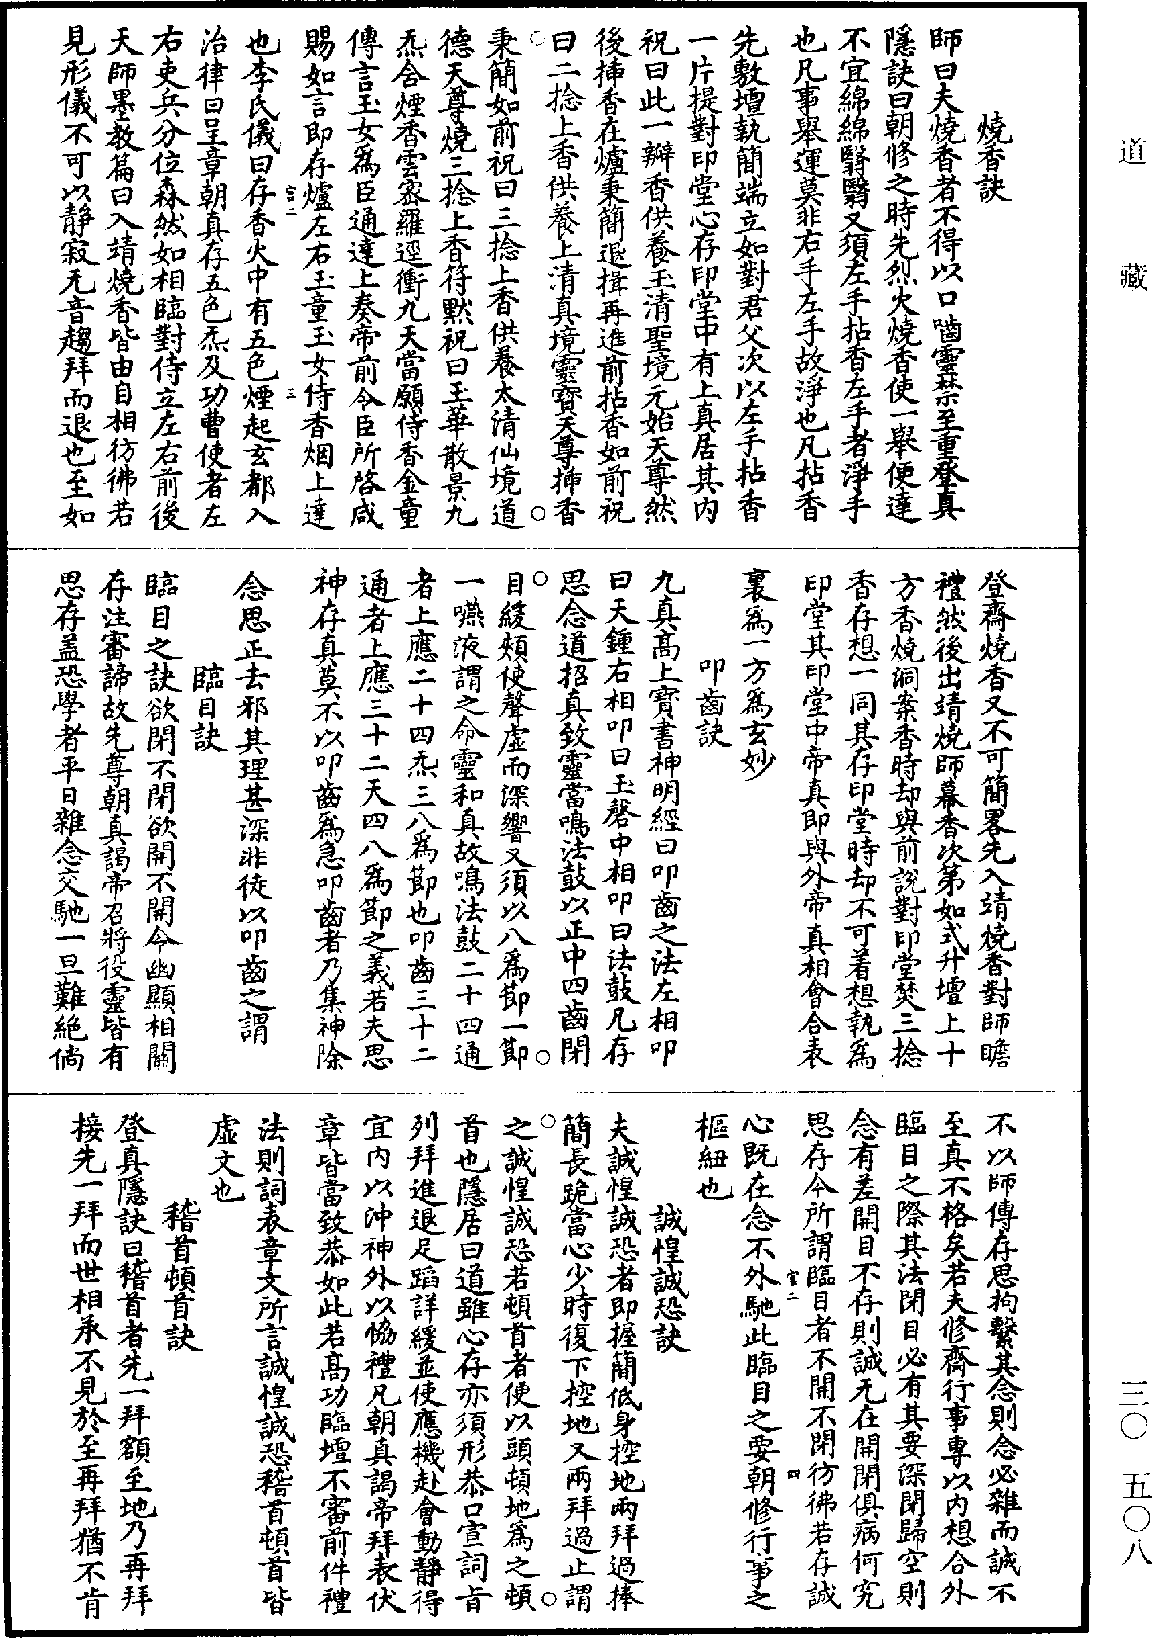 燒香訣
師曰夫燒香者不得以口嚙靈禁至重登真
隱訣曰朝修之時先烈火燒香使一舉便達
不宜綿綿翳翳又須左手拈香左手者淨手
也凡事舉運莫非右手左手故淨也凡拈香
先敷壇執簡端立如對君父次以左手拈香
一片提對印堂心存印堂中有上真居其內
祝曰此一瓣香供養玉清聖境元始天尊然
後揷香在爐秉簡退揖再進前拈香如前祝
曰二捻上香供養上清真境靈寶天尊揷香
秉簡如前祝曰三捻上香供養太清仙境道
德天尊燒三捻上香符默祝曰玉華散景九
炁含煙香雲密羅逕衝九天當願侍香金童
傳言玉女爲臣通達上奏帝前令臣所啓咸
賜如言即存爐左右玉童玉女侍香烟上達
也李氏儀曰存香火中有五色煙起玄都入
治律曰呈章朝真存五色炁及功曹使者左
右吏兵分位森然如相臨對侍立左右前後
天師墨教篇曰入靖燒香皆由自相彷彿若
見形儀不可以静寂无音趨拜而退也至如
登齋燒香又不可簡畧先入靖燒香對師瞻
禮然後出靖燒師幕香次第如式升壇上十
方香燒洞案香時却與前說對印堂焚三捻
香存想一同其存印堂時却不可着想執爲
印堂其印堂中帝真即與外帝真相會合表
裏爲一方爲玄妙
叩齒訣
九真高上寶書神明經曰叩齒之法左相叩
曰天鍾右相叩曰玉磬中相叩曰法鼓凡存
思念道招真致靈當鳴法鼓以正中四齒閉
目緩頰使聲虛而深響又須以八爲節一節
一嚥液謂之命靈和真故鳴法鼓二十四通
者上應二十四炁三八爲節也叩齒三十二
通者上應三十二天四八爲節之義若夫思
神存真莫不以叩齒爲急叩齒者乃集神除
念思正去邪其理甚深非徒以叩齒之謂
臨目訣
臨目之訣欲閉不閉欲開不開今幽顯相關
存注審諦故先尊朝真謁帝召將役靈皆有
思存盖恐學者平日雜念交馳一旦難絶倘
不以師傳存思拘繫其念則念必雜而誠不
至真不格矣若夫修齋行事專以内想合外
臨目之際其法閉目必有其要深閉歸空則
念有差開目不存則誠无在開閉俱病何究
思存今所謂臨目者不開不閉彷彿若存誠
心既在念不外馳此臨目之要朝修行事之
樞紐也
誠惶誠恐訣
夫誠惶誠恐者即握簡低身控地兩拜過捧
簡長跪當心少時復下控地又兩拜過止謂
之誠惶誠恐若頓首者使以頭頓地爲之頓
首也隱居曰道雖心存亦須形恭口宣詞旨
列拜進退足蹈詳緩並使應機赴會動靜得
宜内以沖神外以恊禮凡朝真謁帝拜表伏
章皆當致恭如此若高功臨壇不審前件禮
法則詞表章文所言誠惶誠恐稽首頓首皆
虛文也
稽首頓首訣
登真隱訣曰稽首者先一拜額至地乃再拜
接先一拜而世相承不見於至再拜猶不肯
道藏
三〇　五〇八